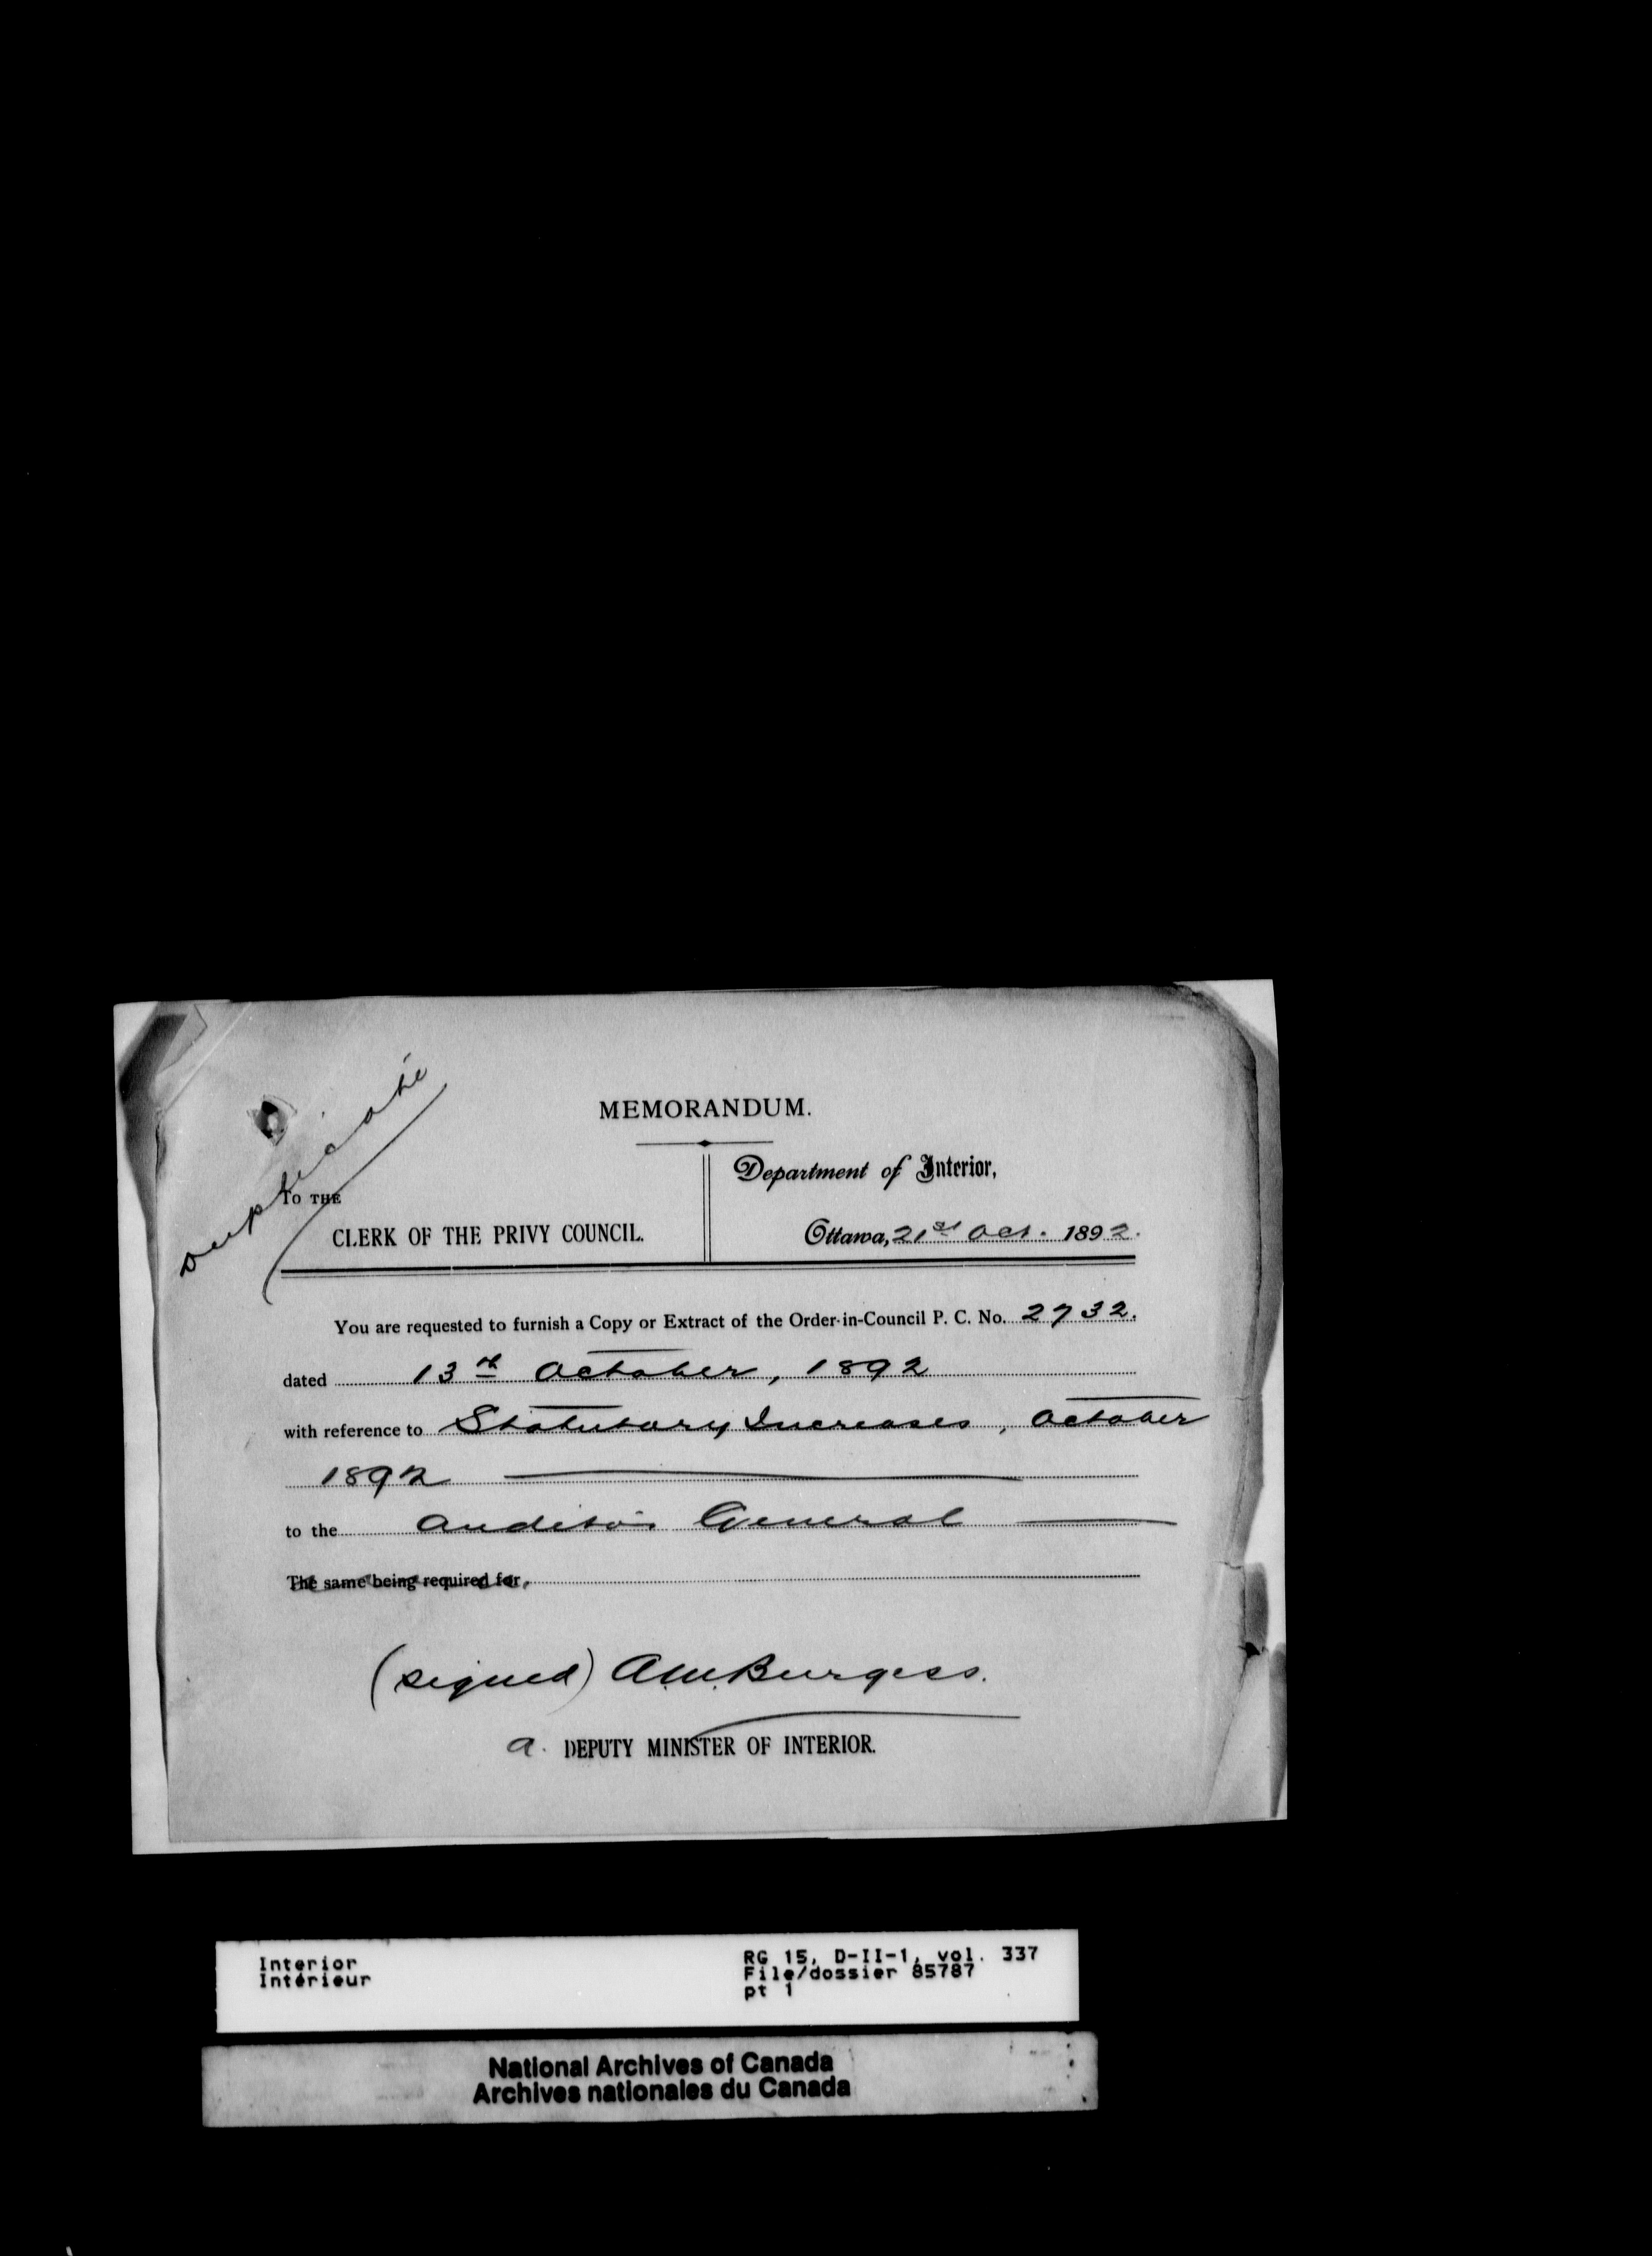 Duplicate
MEMORANDUM.
TO THE
CLERK OF THE PRIVY COUNCIL.
Department of Interior,
Ottawa, 21st Oct. 1892.
You are requested to furnish a Copy or Extract of the Order-in-Council P. C. No. 2732.
dated 13th October, 1892
with reference to Statutory Increases, October
1892
to the Auditor General
The same being required for
(signed) A.M. Burgess.
a. DEPUTY MINISTER OF INTERIOR.
Interior
Intérieur
RG 15, D-II-1, vol. 337
File/dossier 85787
pt 1
National Archives of Canada
Archives nationales du Canada